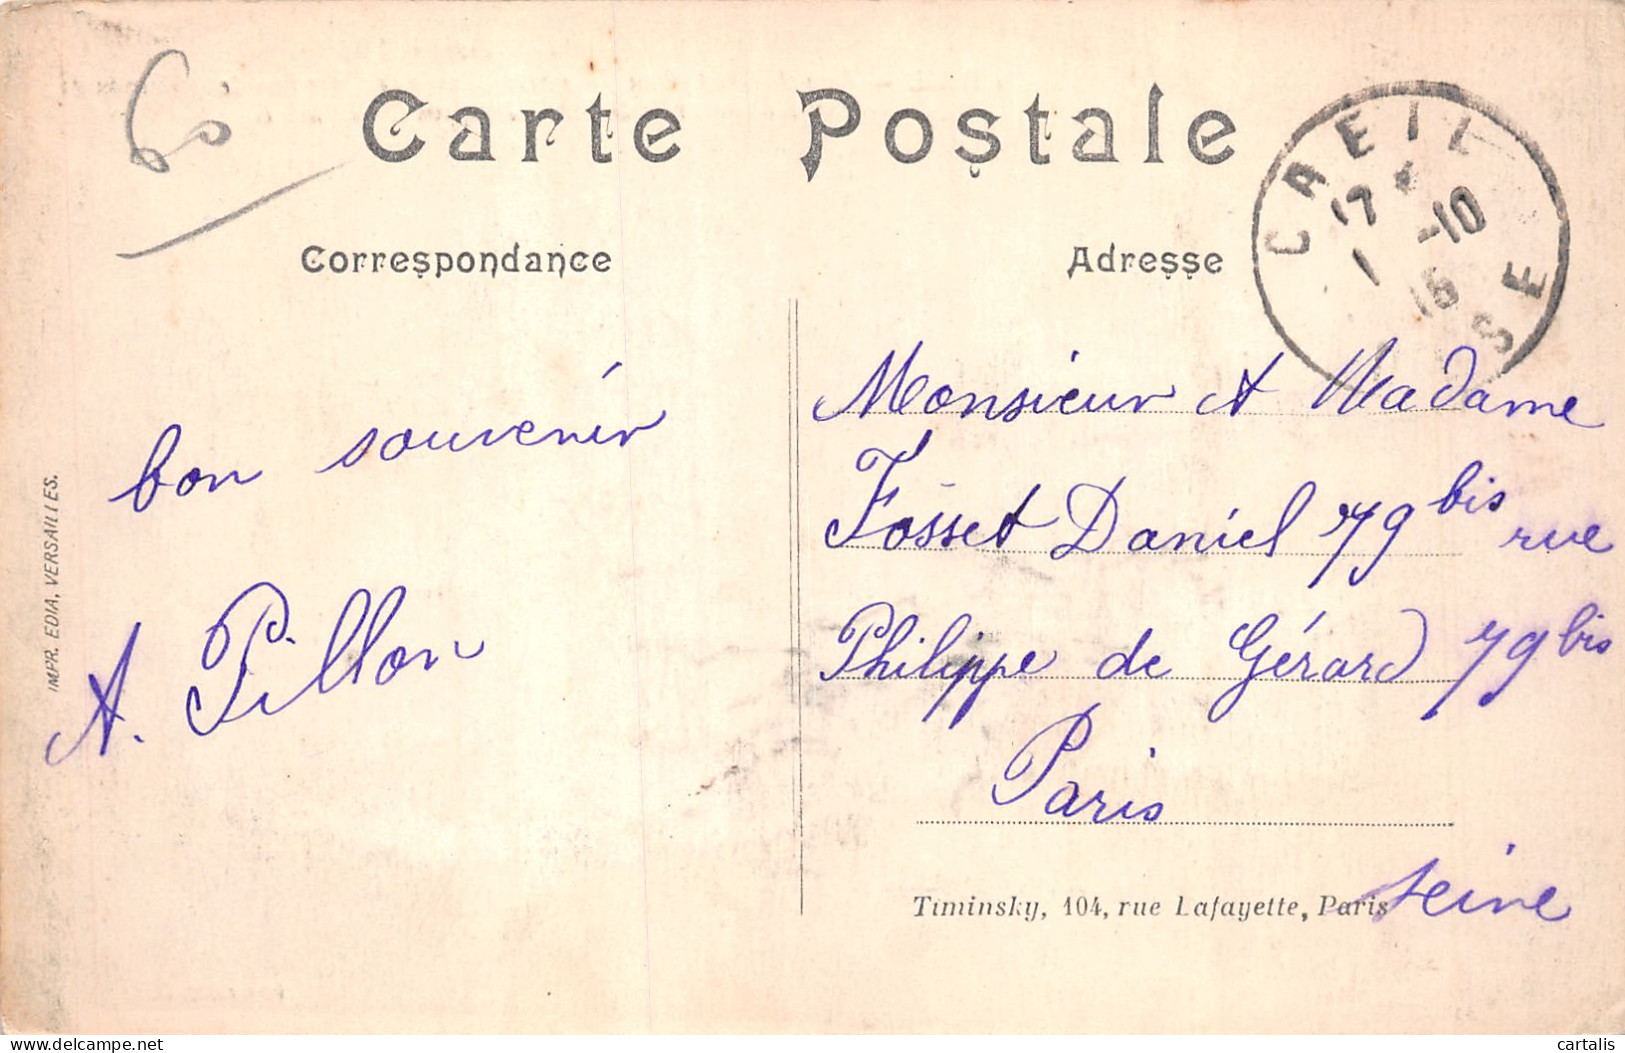 60
Carte Postale
CREIL
17
1 -10
15
OISE
Correspondance
Adresse
bon souvenir
A. Pillon
Monsieur et Madame
Fosset Daniel 79 bis rue
Philippe de Gérard 79 bis
Paris
Seine
Timinsky, 104, rue Lafayette, Paris
IMPR. EDIA, VERSAILLES.
delcampe.net
cartalis